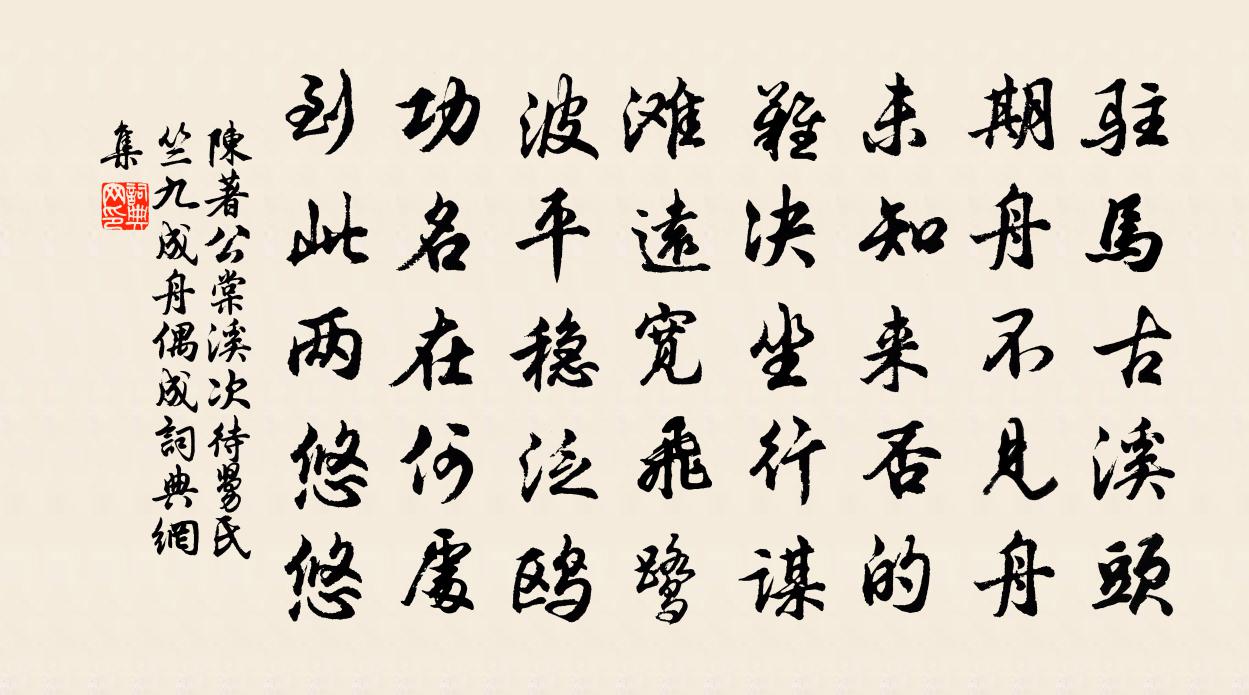 駐馬古溪頭
期舟不見舟
未知来否的
難决坐行謀
滩遠寛飛鷺
波平穏泛鸥
功名在何處
到此两悠悠
陳著公棠溪次待舅氏
竺九成舟偶成詞典網
集
詞典網印